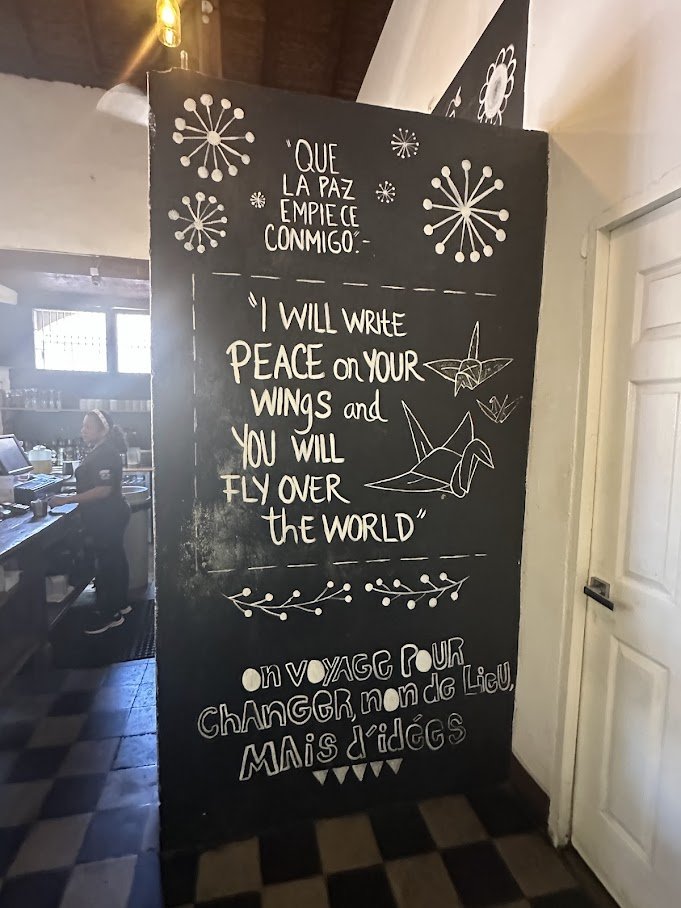 "QUE
LA PAZ
EMPIECE
CONMIGO".-
"I WILL WRITE
PEACE on YOUR
WINgS and
YOU WILL
FLY OVER
the WORLD"
On VOYAGE POUR
CHANGER, non de LieU,
MAis d'idées